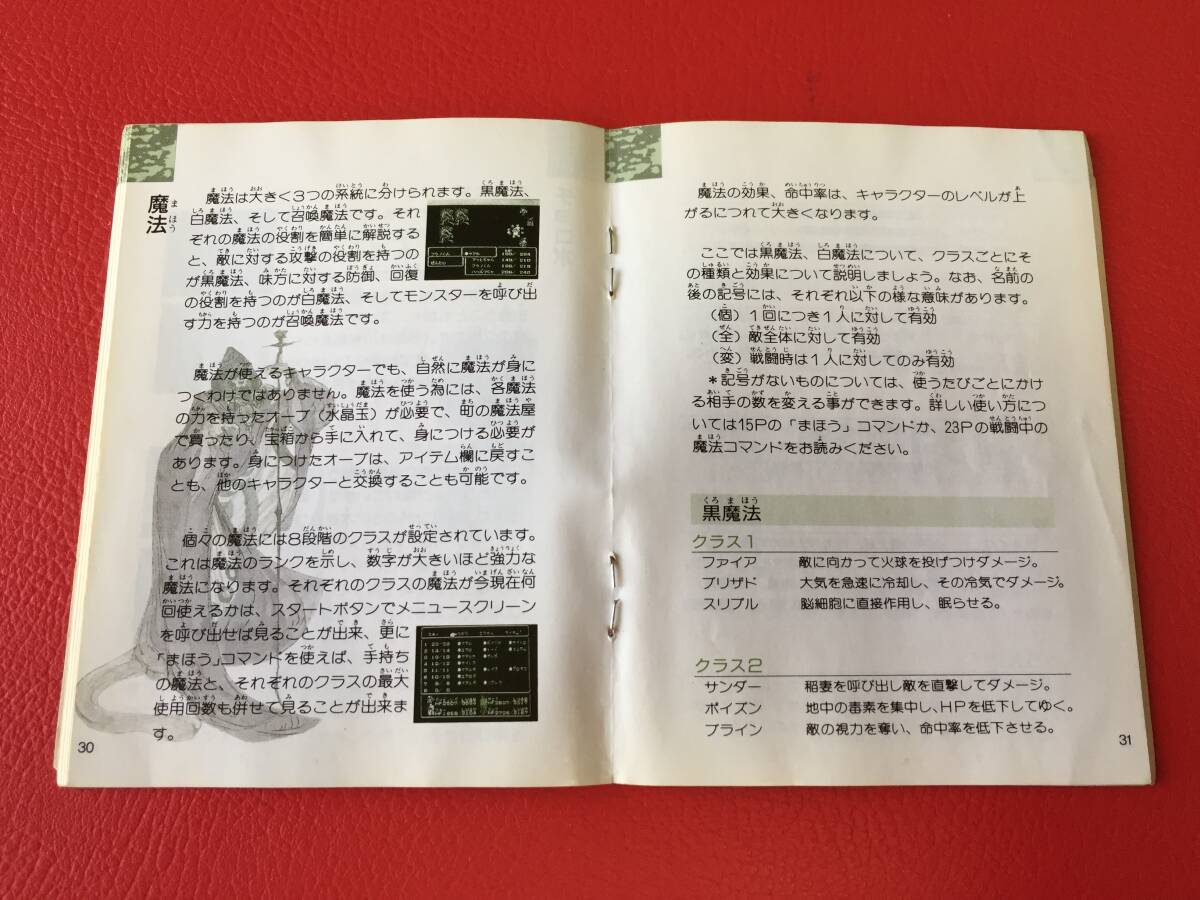 魔法
魔法は大きく3つの系統に分けられます。黒魔法、
白魔法、そして召喚魔法です。それ
ぞれの魔法の役割を簡単に解説する
と、敵に対する攻撃の役割を持つの
が黒魔法、味方に対する防御、回復
の役割を持つのが白魔法、そしてモンスターを呼び出
す力を持つのが召喚魔法です。
魔法が使えるキャラクターでも、自然に魔法が身に
つくわけではありません。魔法を使う為には、各魔法
の力を持ったオーブ(水晶玉)が必要で、町の魔法屋
で買ったり、宝箱から手に入れて、身につける必要が
あります。身につけたオーブは、アイテム欄に戻すこ
とも、他のキャラクターと交換することも可能です。
個々の魔法には8段階のクラスが設定されています。
これは魔法のランクを示し、数字が大きいほど強力な
魔法になります。それぞれのクラスの魔法が今現在何
回使えるかは、スタートボタンでメニュースクリーン
を呼び出せば見ることが出来、更に
「まほう」コマンドを使えば、手持ち
の魔法と、それぞれのクラスの最大
使用回数も併せて見ることが出来ま
す。
30
魔法の効果、命中率は、キャラクターのレベルが上
がるにつれて大きくなります。
ここでは黒魔法、白魔法について、クラスごとにそ
の種類と効果について説明しましょう。なお、名前の
後の記号には、それぞれ以下の様な意味があります。
(個)1回につき1人に対して有効
(全)敵全体に対して有効
(変)戦闘時は1人に対してのみ有効
*記号がないものについては、使うたびごとにかけ
る相手の数を変える事ができます。詳しい使い方につ
いては15Pの「まほう」コマンドか、23Pの戦闘中の
魔法コマンドをお読みください。
黒魔法
クラス1
ファイア 敵に向かって火球を投げつけダメージ。
ブリザド 大気を急速に冷却し、その冷気でダメージ。
スリプル 脳細胞に直接作用し、眠らせる。
クラス2
サンダー 稲妻を呼び出し敵を直撃してダメージ。
ポイズン 地中の毒素を集中し、HPを低下してゆく。
ブライン 敵の視力を奪い、命中率を低下させる。
31